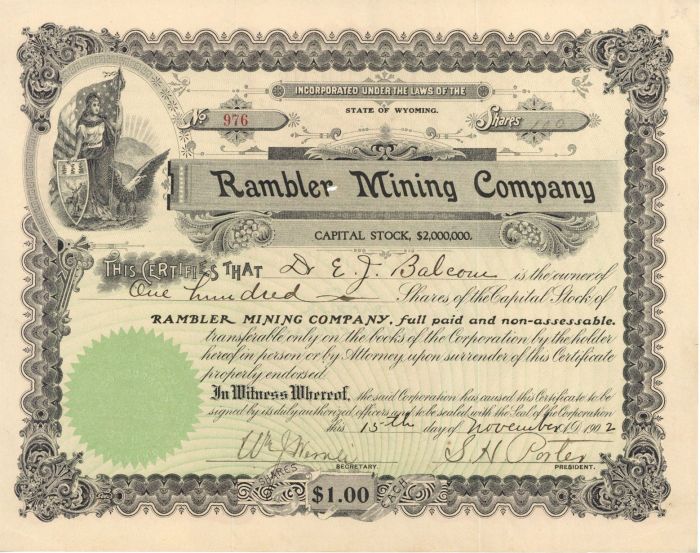 INCORPORATED UNDER THE LAWS OF THE
STATE OF WYOMING.
No 976
Shares 100
Rambler Mining Company
CAPITAL STOCK, $2,000,000.
THIS CERTIFIES THAT Dr E. J. Balcom is the owner of
One hundred Shares of the Capital Stock of
RAMBLER MINING COMPANY, full paid and non-assessable.
transferable only on the books of the Corporation by the holder
hereof in person or by Attorney upon surrender of this Certificate
properly endorsed.
In Witness Whereof, the said Corporation has caused this Certificate to be
signed by its duly authorized officers and to be sealed with the Seal of the Corporation
this 15th day of November 1902
Wm J
S. H. Porter
SECRETARY.
PRESIDENT.
SHARES $1.00 EACH